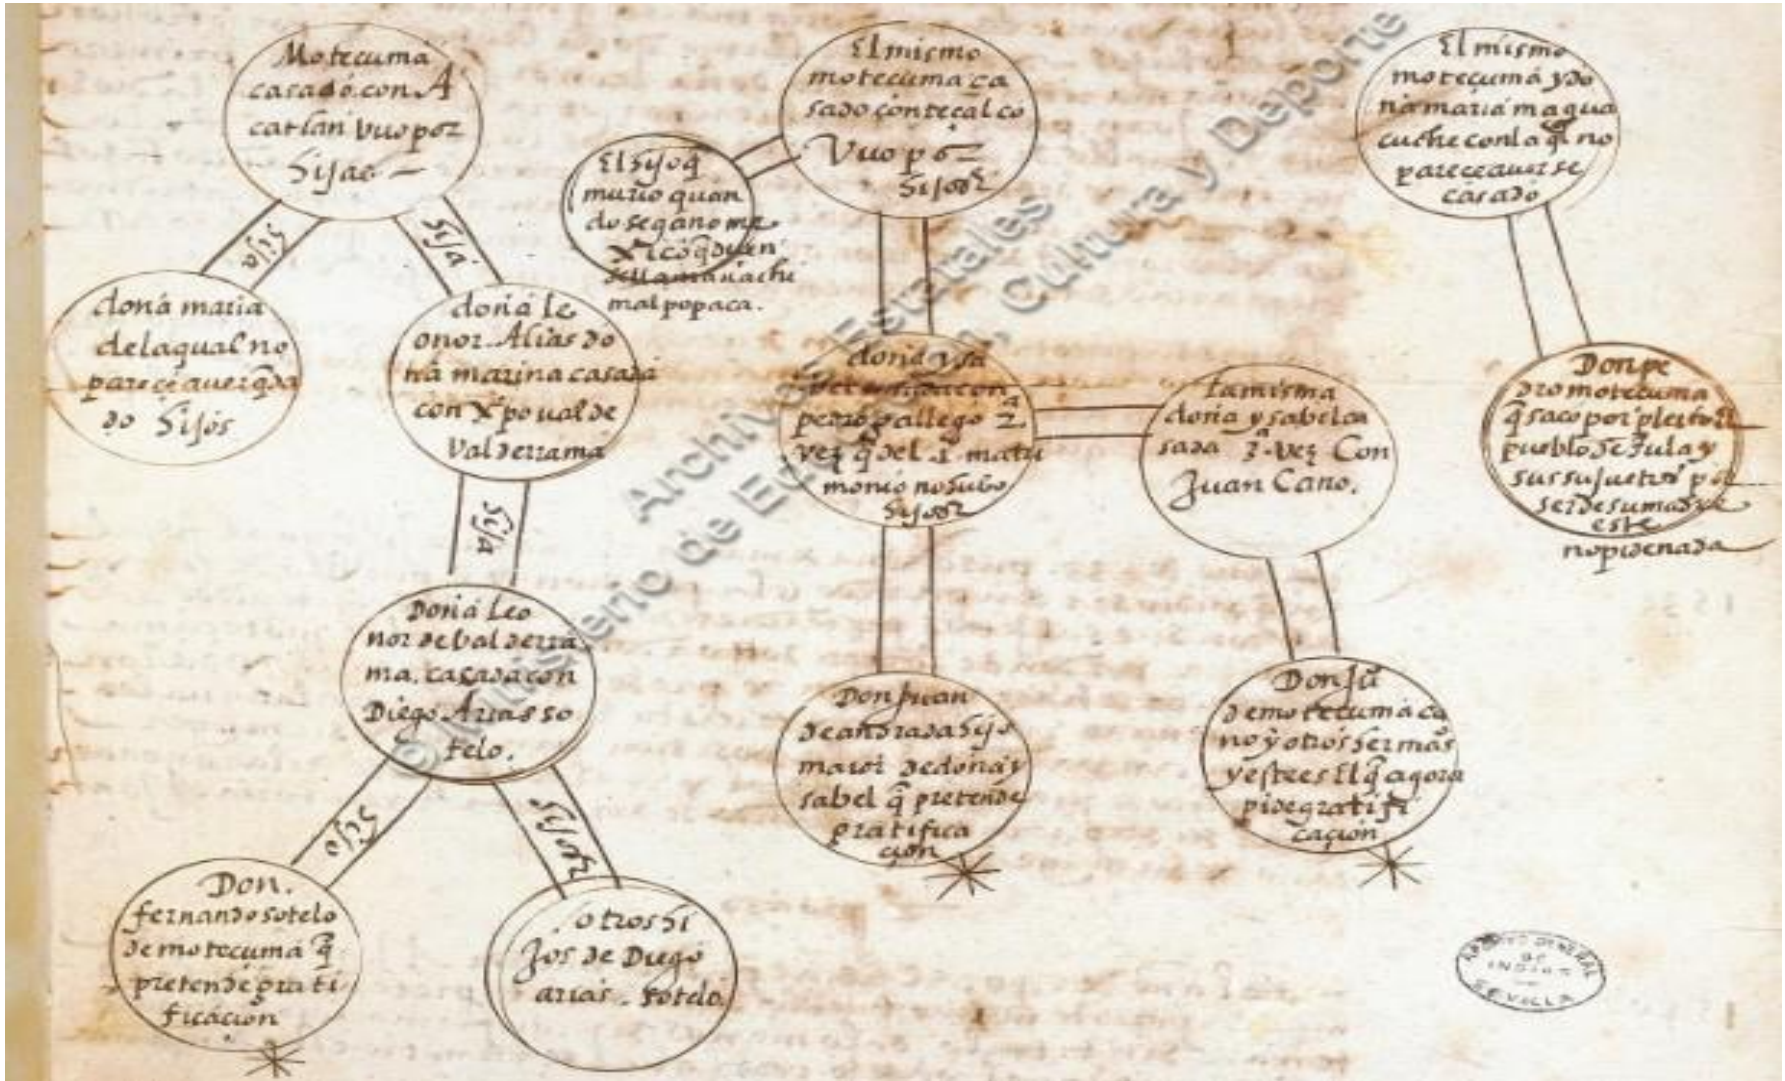 Motecuma
casado con A
catlan Vuo por
hijas —
hija
hija
doña maria
de la qual no
pareçe auer q̃da
do hijos
doña le
onor. Alias do
ña marina casada
con X̄po ual de
Valderrama
hija
Doña Leo
nor de balderra
ma. casada con
Diego Arias so
telo.
hijo
hijos
Don.
fernando sotelo
de motecuma q̃
pretende grati
ficacion
otros hi
jos de Diego
arias. sotelo.
El mismo
motecuma ca
sado con tecalco
Vuo por
hijos
El hijo q̃
murio quan
do se gano me
xico q̃ dizen
se llamaua chi
malpopaca.
doña ysa
bel casada con
pedro gallego 2ª
vez q̃ del 1º matri
monio no hubo
hijos
la misma
doña ysabel ca
sada 3ª vez Con
Juan Cano.
Don Juan
de andrada hijo
maior de doña y
sabel q̃ pretende
gratifica
cion
Don Ju
de motecuma ca
no y otros herm̃os
y este es el q̃ agora
pide gratifi
caçion
El mismo
motecuma y do
ña maria miagua
suchil con la q̃ no
parece auerse
casado
Don pe
dro motecuma
q̃ saco por pleito el
pueblo de tula y
sus sujetos por
ser de su madre
este
no pide nada
© Ministerio de Educación, Cultura y Deporte
Archivos Estatales
ARCHIVO GENERAL
DE
INDIAS
SEVILLA